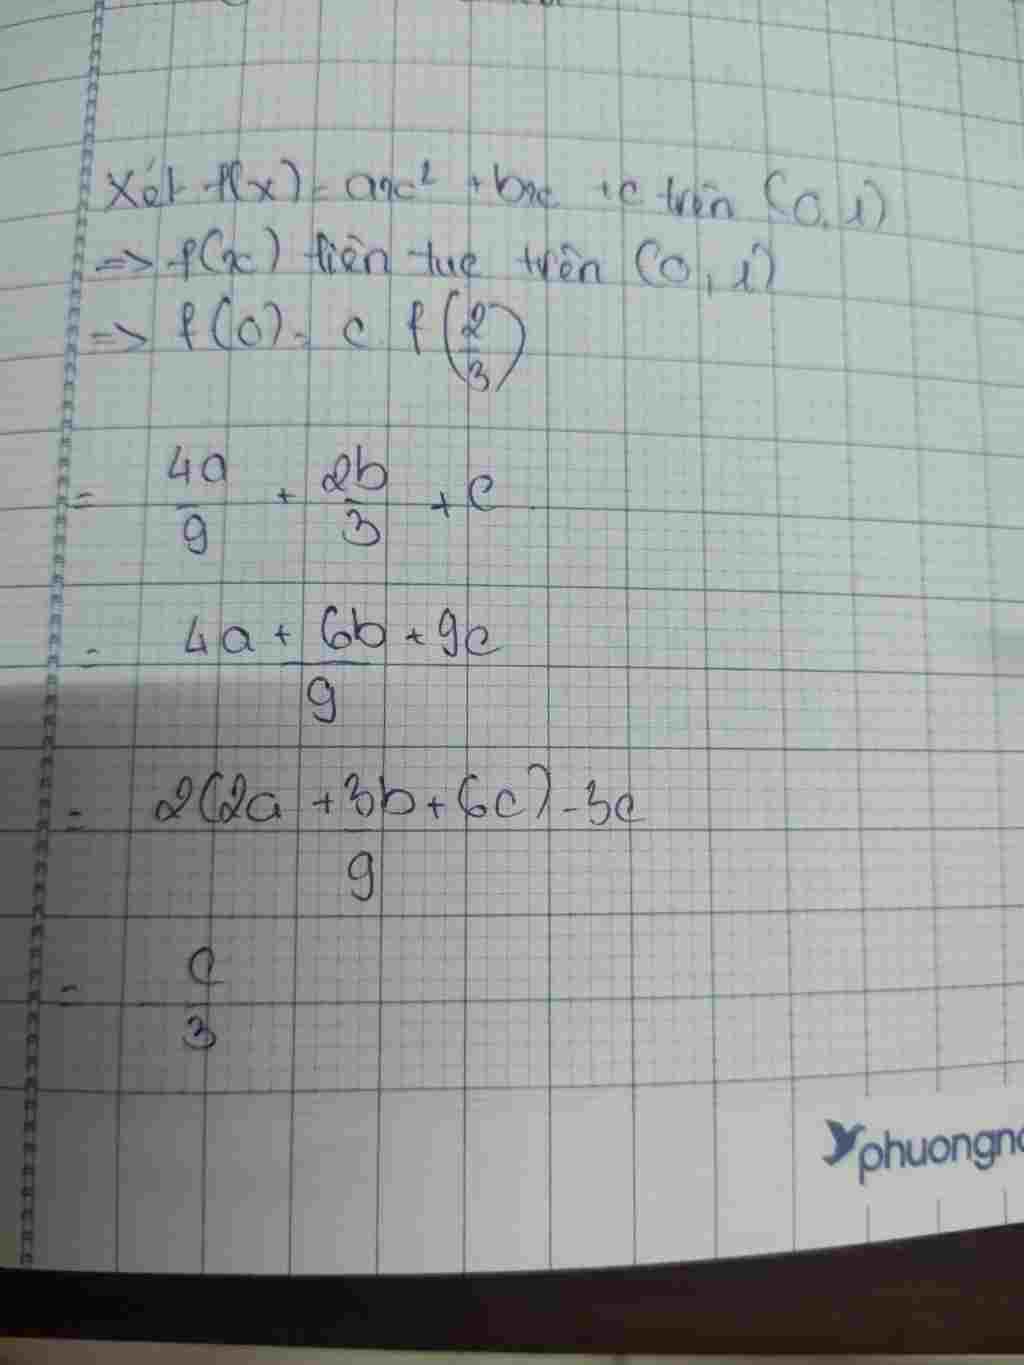 Xét f(x) = ax² + bx + c trên (0, 1)
=> f(x) liên tục trên (0, 1)
=> f(0) = c f(2/3)
= 4a/9 + 2b/3 + c
= (4a + 6b + 9c)/9
= (2(2a + 3b + 6c) - 3c)/9
= - c/3
phuongn